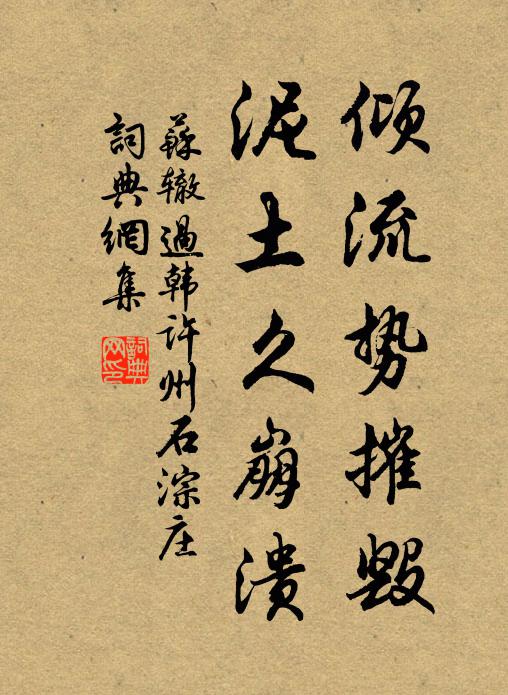 倾流势摧毁
泥土久崩溃
蘇辙過韩许州石淙庄
詞典網集
詞典网印